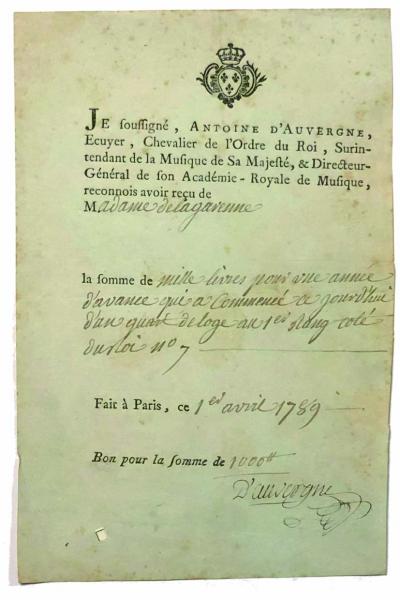 JE souſſigné, ANTOINE D'AUVERGNE,
Ecuyer, Chevalier de l'Ordre du Roi, Surin-
tendant de la Muſique de Sa Majeſté, & Directeur-
Général de ſon Académie-Royale de Muſique,
reconnois avoir reçu de
Madame delagarenne
la ſomme de mille livres pour une année
d'avance qui a Commencé ce jourd'hui
d'un quart de loge au 1er Rang coté
du Roi no 7
Fait à Paris, ce 1er avril 1789
Bon pour la ſomme de 1000tt
D'auvergne